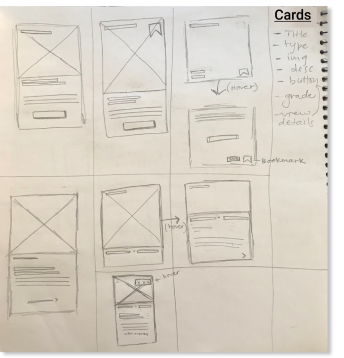 Cards
- Title
- type
- img
- desc
- button
- grade
- view
details
(Hover)
Bookmark
(hover)
hover